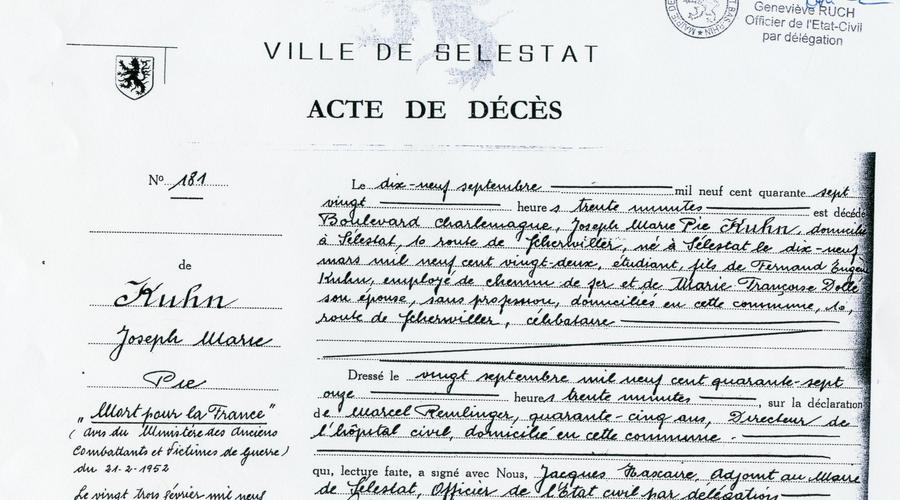 Geneviève RUCH
Officier de l'Etat-Civil
par délégation
VILLE DE SELESTAT
ACTE DE DÉCÈS
No 181
de
Kuhn
Joseph Marie
Pie
"Mort pour la France"
(avis du Ministère des Anciens
Combattants et Victimes de Guerre)
du 21-2-1952
Le vingt trois février mil neuf
Le dix-neuf septembre mil neuf cent quarante sept
vingt heures trente minutes est décédé
Boulevard Charlemagne, Joseph Marie Pie Kuhn, domicilié
à Sélestat, 10 route de Scherwiller, né à Sélestat le dix-neuf
mars mil neuf cent vingt-deux, étudiant, fils de Fernand Eugène
Kuhn, employé de chemin de fer et de Marie Françoise Dolle
son épouse, sans profession, domiciliés en cette commune, 10,
route de Scherwiller, célibataire
Dressé le vingt septembre mil neuf cent quarante-sept
onze heures trente minutes, sur la déclaration
de Marcel Remlinger, quarante-cinq ans, Directeur de
l'hôpital civil, domicilié en cette commune.
qui, lecture faite, a signé avec Nous, Jacques Adjoint au Maire
de Sélestat, Officier de l'État civil par délégation